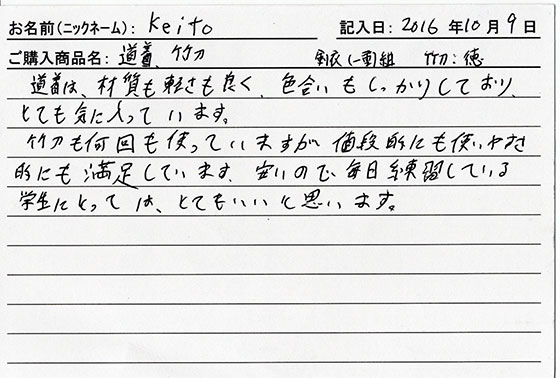 お名前(ニックネーム): keito 記入日: 2016 年 10 月 9 日
ご購入商品名: 道着、竹刀 剣衣(一重)紺 竹刀:徳
道着は、材質も軽さも良く、色合いもしっかりしており、
とても気に入っています。
竹刀も何回も使っていますが、値段的にも使いやすさ
的にも満足しています。安いので、毎日練習している
学生にとっては、とてもいいと思います。